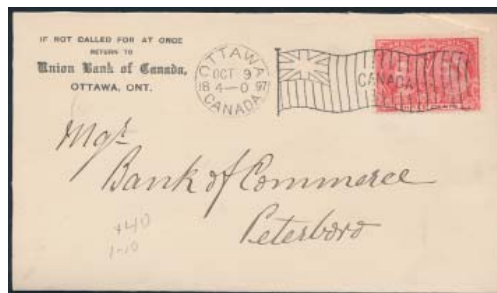 IF NOT CALLED FOR AT ONCE
RETURN TO
Union Bank of Canada,
OTTAWA, ONT.
OTTAWA
OCT 9
18 4-0 97
CANADA
CANADA
Mgr
Bank of Commerce
Peterboro
+40
1-10